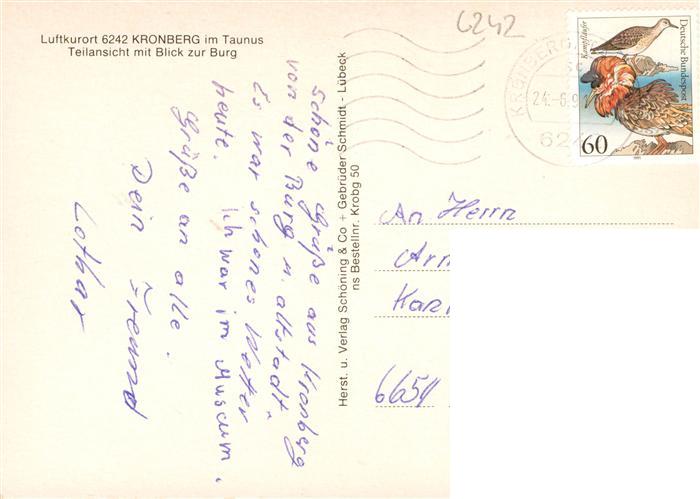 Luftkurort 6242 KRONBERG im Taunus
Teilansicht mit Blick zur Burg
6242
schöne Grüße aus Kronberg
von der Burg u. altstadt.
Es war schönes Wetter
heute. Ich war im Museum.
Grüße an alle.
Dein Freund
Lothar
Herst. u. Verlag Schöning & Co + Gebrüder Schmidt - Lübeck
ns Bestellnr. Krobg 50
KRONBERG
24.-6.9
62
Kampfläufer
Deutsche Bundespost
60
1991
An Herrn
Arn
Karl
6654